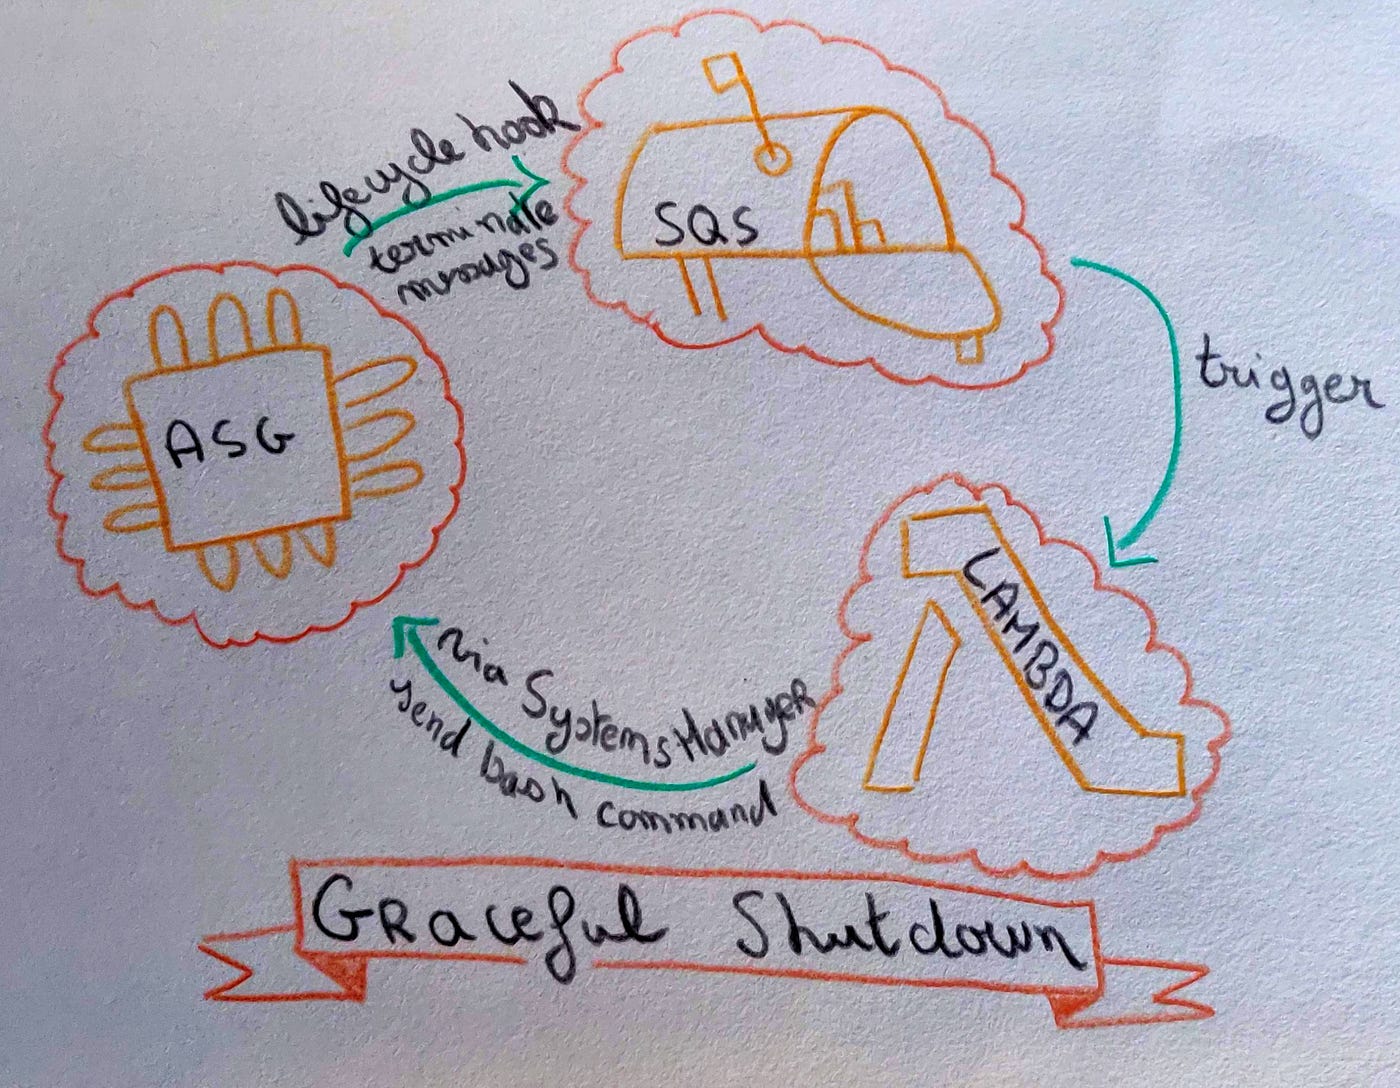 lifecycle hook
terminate
messages
SQS
trigger
ASG
LAMBDA
via Systems Manager
send bash command
GRaceful Shutdown